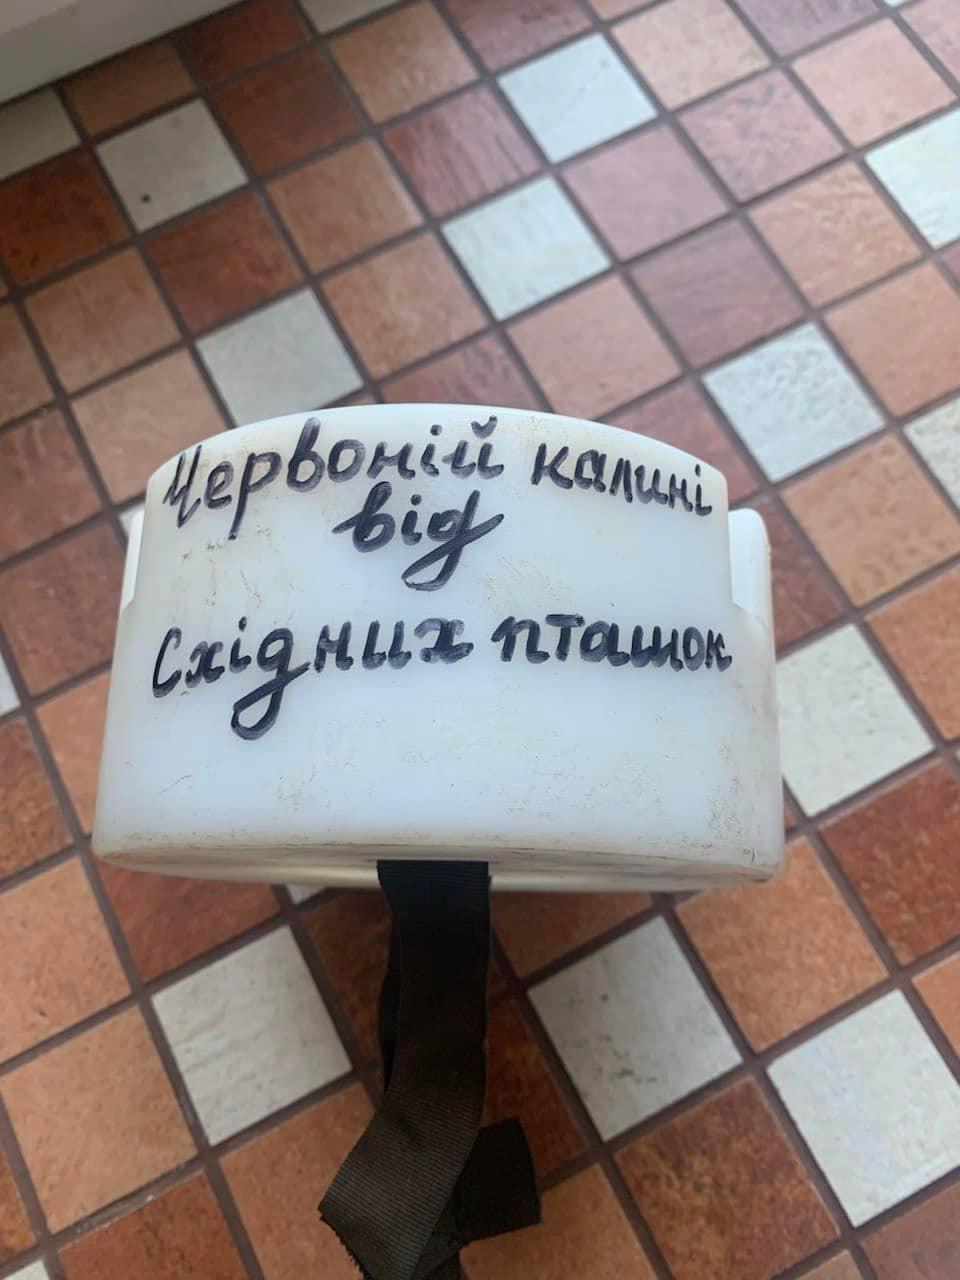 Червоній калині
від
Східних пташок